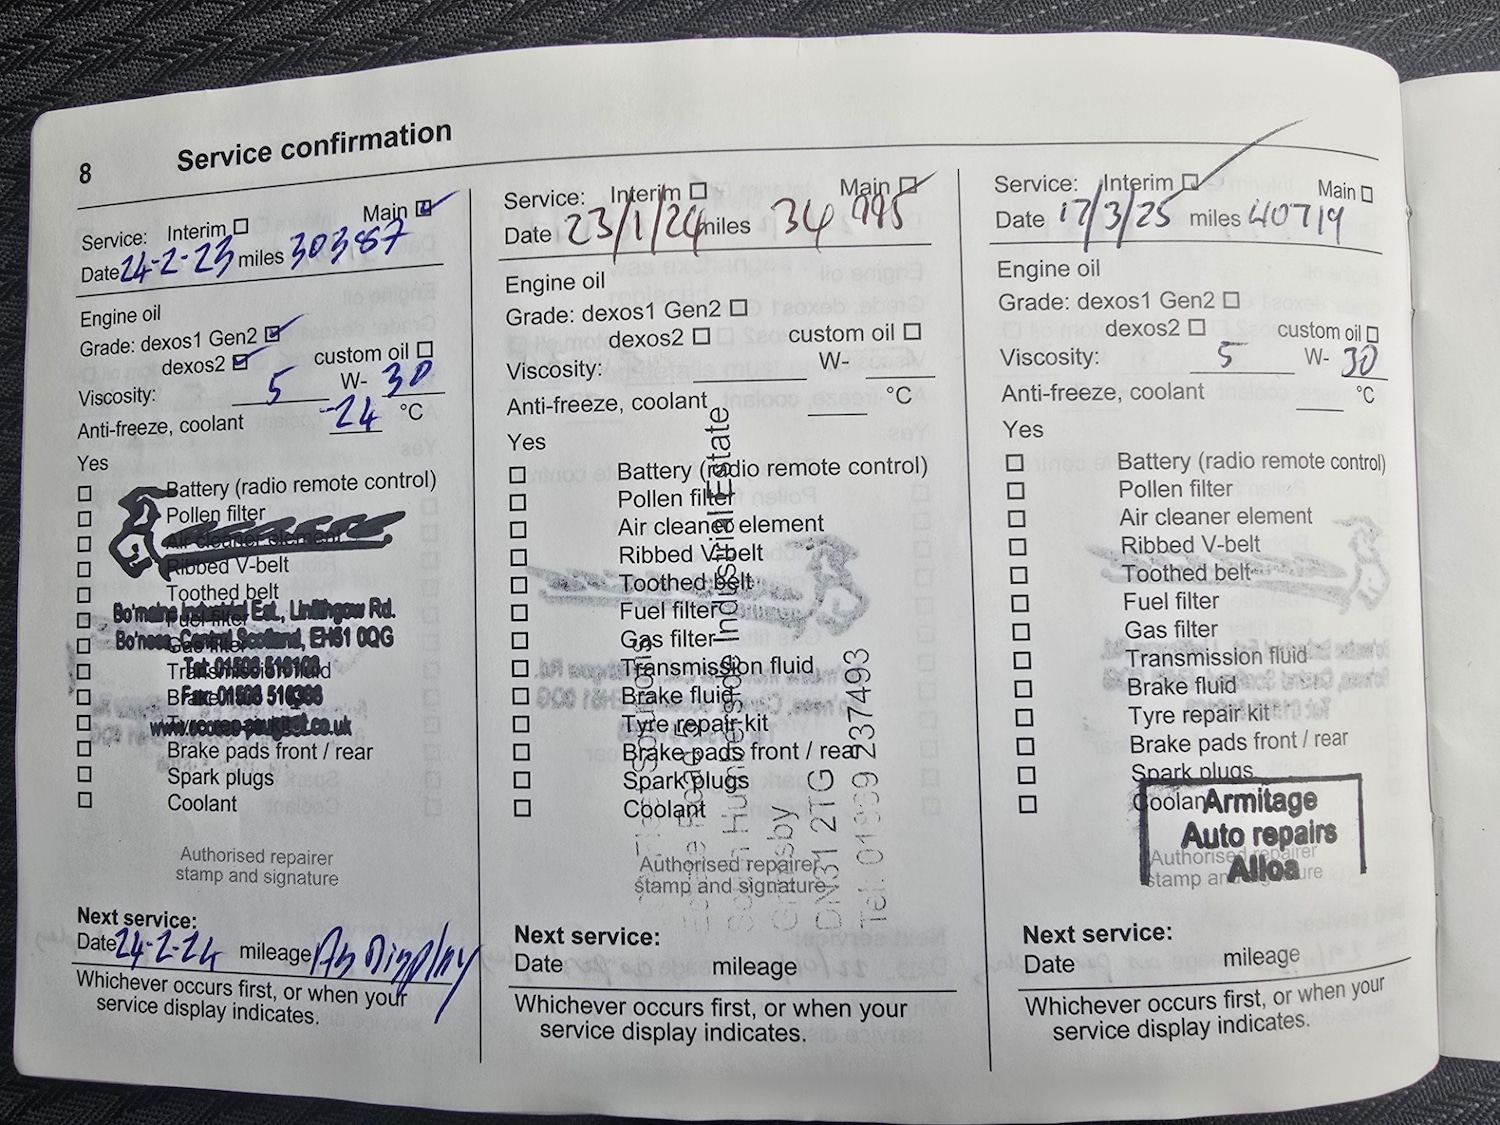 8 Service confirmation
Service: Interim ☐ Main ☑
Date 24-2-23 miles 30387
Engine oil
Grade: dexos1 Gen2 ☑
dexos2 ☑ custom oil ☐
Viscosity: 5 W- 30
Anti-freeze, coolant -24 °C
Yes
☐ Battery (radio remote control)
☐ Pollen filter
☐ Air cleaner element
☐ Ribbed V-belt
☐ Toothed belt
☐ Fuel filter
☐ Gas filter
☐ Transmission fluid
☐ Brake
☐
☐ Brake pads front / rear
☐ Spark plugs
☐ Coolant
Bo'mains Industrial Est., Linlithgow Rd.
Bo'ness, Central Scotland, EH51 0QG
Tel: 01506
Fax: 01506
Authorised repairer
stamp and signature
Next service:
Date 24-2-24 mileage As Display
Whichever occurs first, or when your
service display indicates.
Service: Interim ☐ Main ☑
Date 23/1/24 miles 34 995
Engine oil
Grade: dexos1 Gen2 ☐
dexos2 ☐ custom oil ☐
Viscosity: W-
Anti-freeze, coolant °C
Yes
☐ Battery (radio remote control)
☐ Pollen filter
☐ Air cleaner element
☐ Ribbed V-belt
☐ Toothed belt
☐ Fuel filter
☐ Gas filter
☐ Transmission fluid
☐ Brake fluid
☐ Tyre repair kit
☐ Brake pads front / rear
☐ Spark plugs
☐ Coolant
South Humberside Industrial Estate
Grimsby
DN31 2TG
Tel: 237493
Authorised repairer
stamp and signature
Next service:
Date mileage
Whichever occurs first, or when your
service display indicates.
Service: Interim ☑ Main ☐
Date 17/3/25 miles 40719
Engine oil
Grade: dexos1 Gen2 ☐
dexos2 ☐ custom oil ☐
Viscosity: 5 W- 30
Anti-freeze, coolant °C
Yes
☐ Battery (radio remote control)
☐ Pollen filter
☐ Air cleaner element
☐ Ribbed V-belt
☐ Toothed belt
☐ Fuel filter
☐ Gas filter
☐ Transmission fluid
☐ Brake fluid
☐ Tyre repair kit
☐ Brake pads front / rear
☐ Spark plugs
☐ Coolant
Armitage
Auto repairs
Alloa
Authorised repairer
stamp and signature
Next service:
Date mileage
Whichever occurs first, or when your
service display indicates.